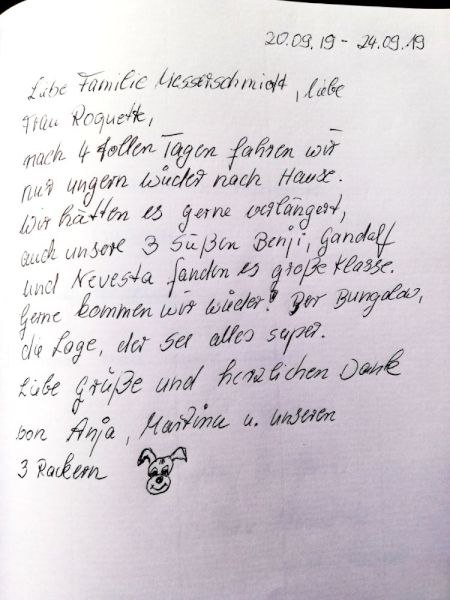 20.09.19 - 24.09.19
Liebe Familie Messerschmidt, liebe
Frau Roquette,
nach 4 tollen Tagen fahren wir
nur ungern wieder nach Hause.
Wir hätten es gerne verlängert,
auch unsere 3 Süßen Benji, Gandalf
und Nevesta fanden es große Klasse.
Gerne kommen wir wieder! Der Bungalow,
die Lage, der See alles super.
Liebe Grüße und herzlichen Dank
von Anja, Martina u. unseren
3 Rackern